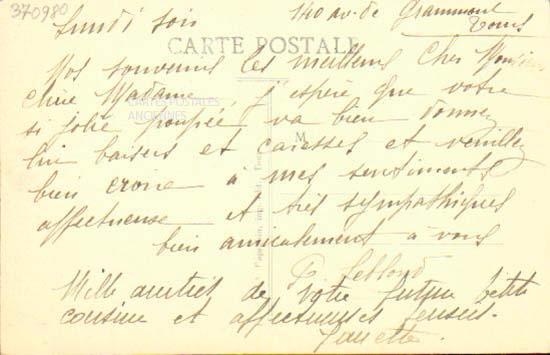 370980
Lundi soir 140 av. de Grammont
Tours
CARTE POSTALE
Nos souvenirs les meilleurs Cher Monsieur
chère Madame, j'espère que votre
CARTES POSTALES
ANCIENNES
si jolie poupée va bien donnez
M
lui baisers et caresses et veuillez
bien croire à mes sentiments
affectueuse et très sympathiques
bien amicalement à vous
Mille amitiés de votre future petite
cousine et affectueuses pensées.